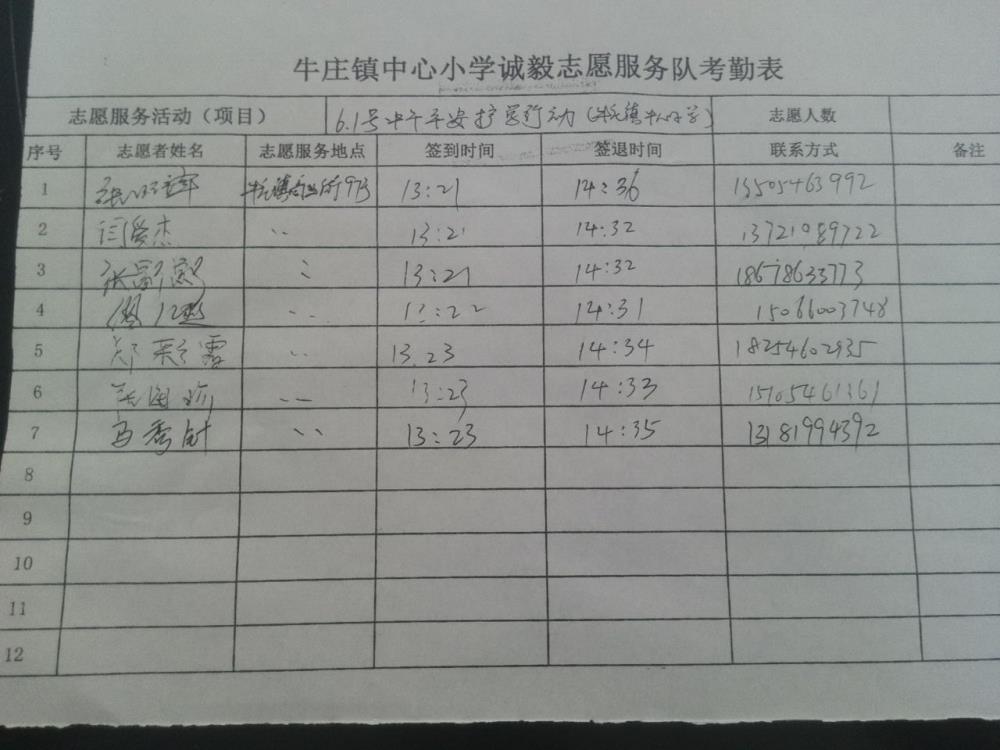 牛庄镇中心小学诚毅志愿服务队考勤表
志愿服务活动（项目） 6.1号中午平安护学行动（牛庄镇中心小学） 志愿人数
序号 志愿者姓名 志愿服务地点 签到时间 签退时间 联系方式 备注
1 牛庄镇 13:21 14:36 13505463992
2 闫爱杰 〃 13:21 14:32 13721089722
3 〃 13:21 14:32 18678633773
4 〃 13:22 14:31 15066003748
5 郑彩霞 〃 13.23 14:34 18254602935
6 〃 13:23 14:33 15105461361
7 马秀针 〃 13:23 14:35 13181994392
8
9
10
11
12